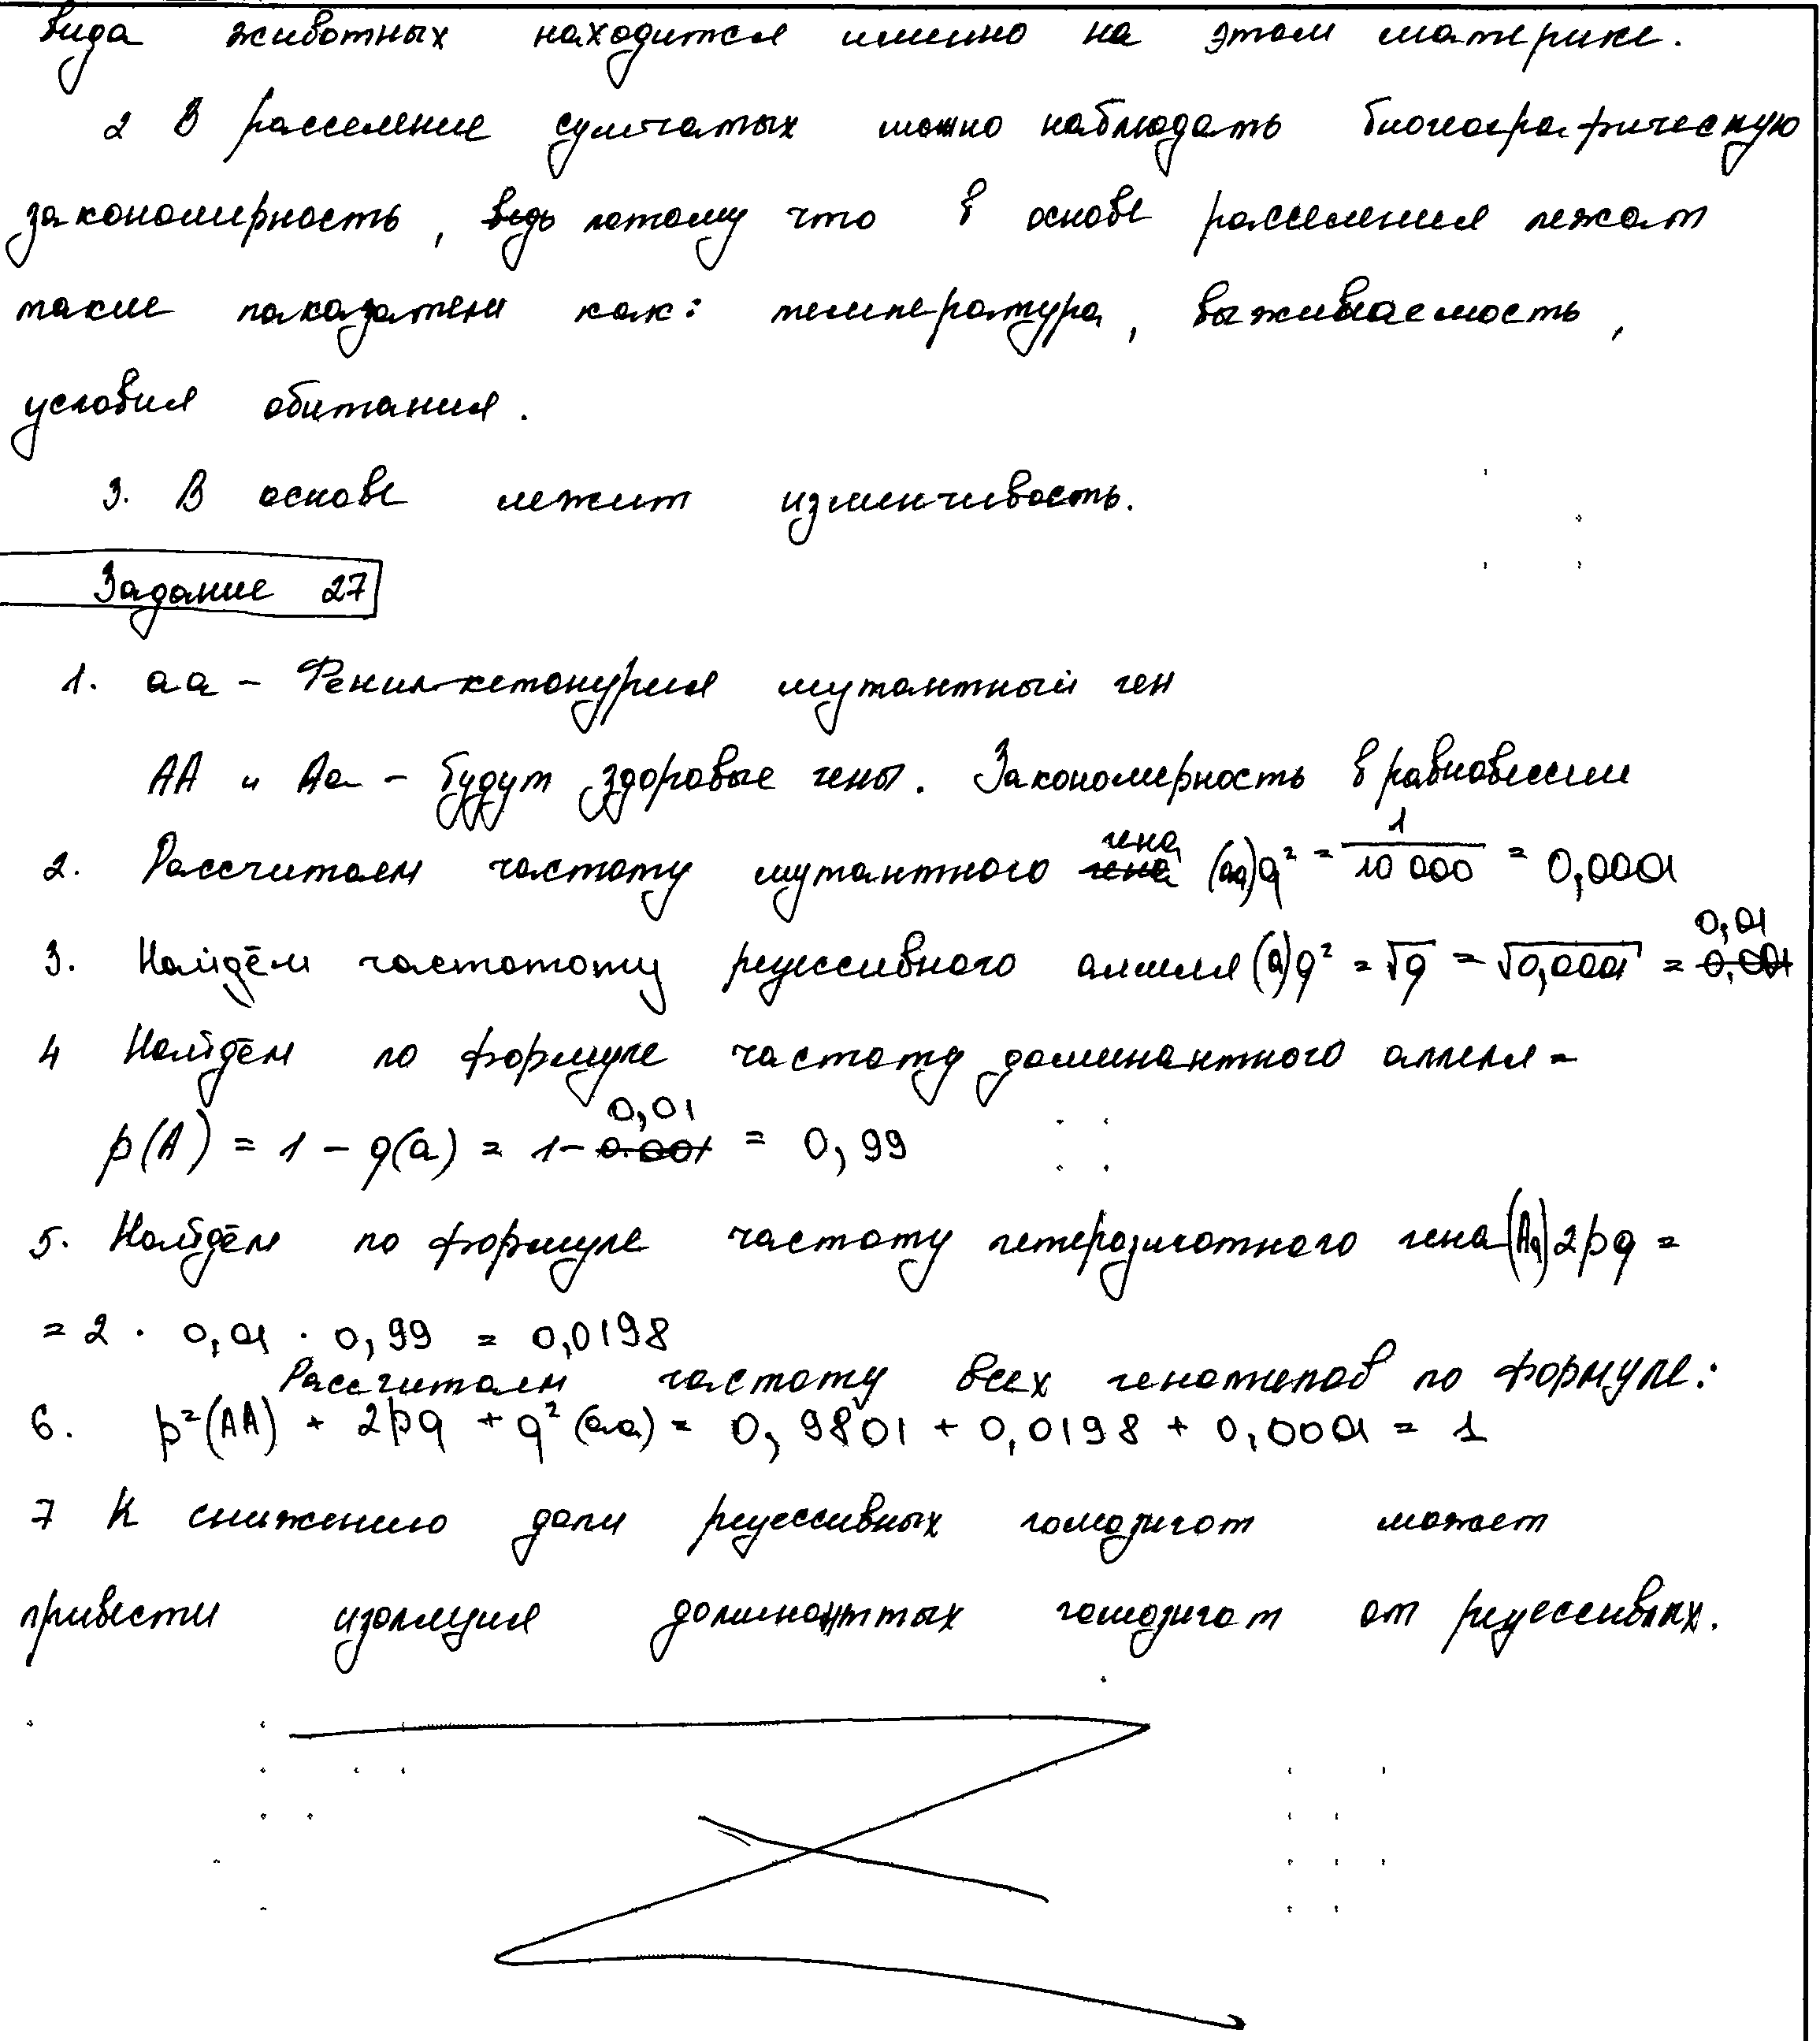 вида животных находится именно на этом материке.
2 В расселение сумчатых можно наблюдать биогеографическую
закономерность, ведь потому что в основе расселения лежат
такие показатели как: температура, выживаемость,
условия обитания.
3. В основе лежит изменчивость.
Задание 27
1. аа - Фенилкетонурия мутантный ген
АА и Аа - будут здоровые гены. Закономерность в равновесии
2. Рассчитаем частоту мутантного гена гена (аа)q² = 1/10 000 = 0,0001
3. Найдём частототу рецессивного аллеля (а)q² = √q = √0,0001 = 0,001 0,01
4 Найдём по формуле частоту доминантного аллеля =
p(A) = 1 - q(a) = 1 - 0.001 0,01 = 0,99
5. Найдём по формуле частоту гетерозиготного гена (Аа) 2pq =
= 2 · 0,01 · 0,99 = 0,0198
Рассчитаем частоту всех генотипов по формуле:
6. p²(AA) + 2pq + q²(aa) = 0,9801 + 0,0198 + 0,0001 = 1
7 К снижению доли рецессивных гомозигот может
привести изоляция доминонттых гомозигот от рецессивных.